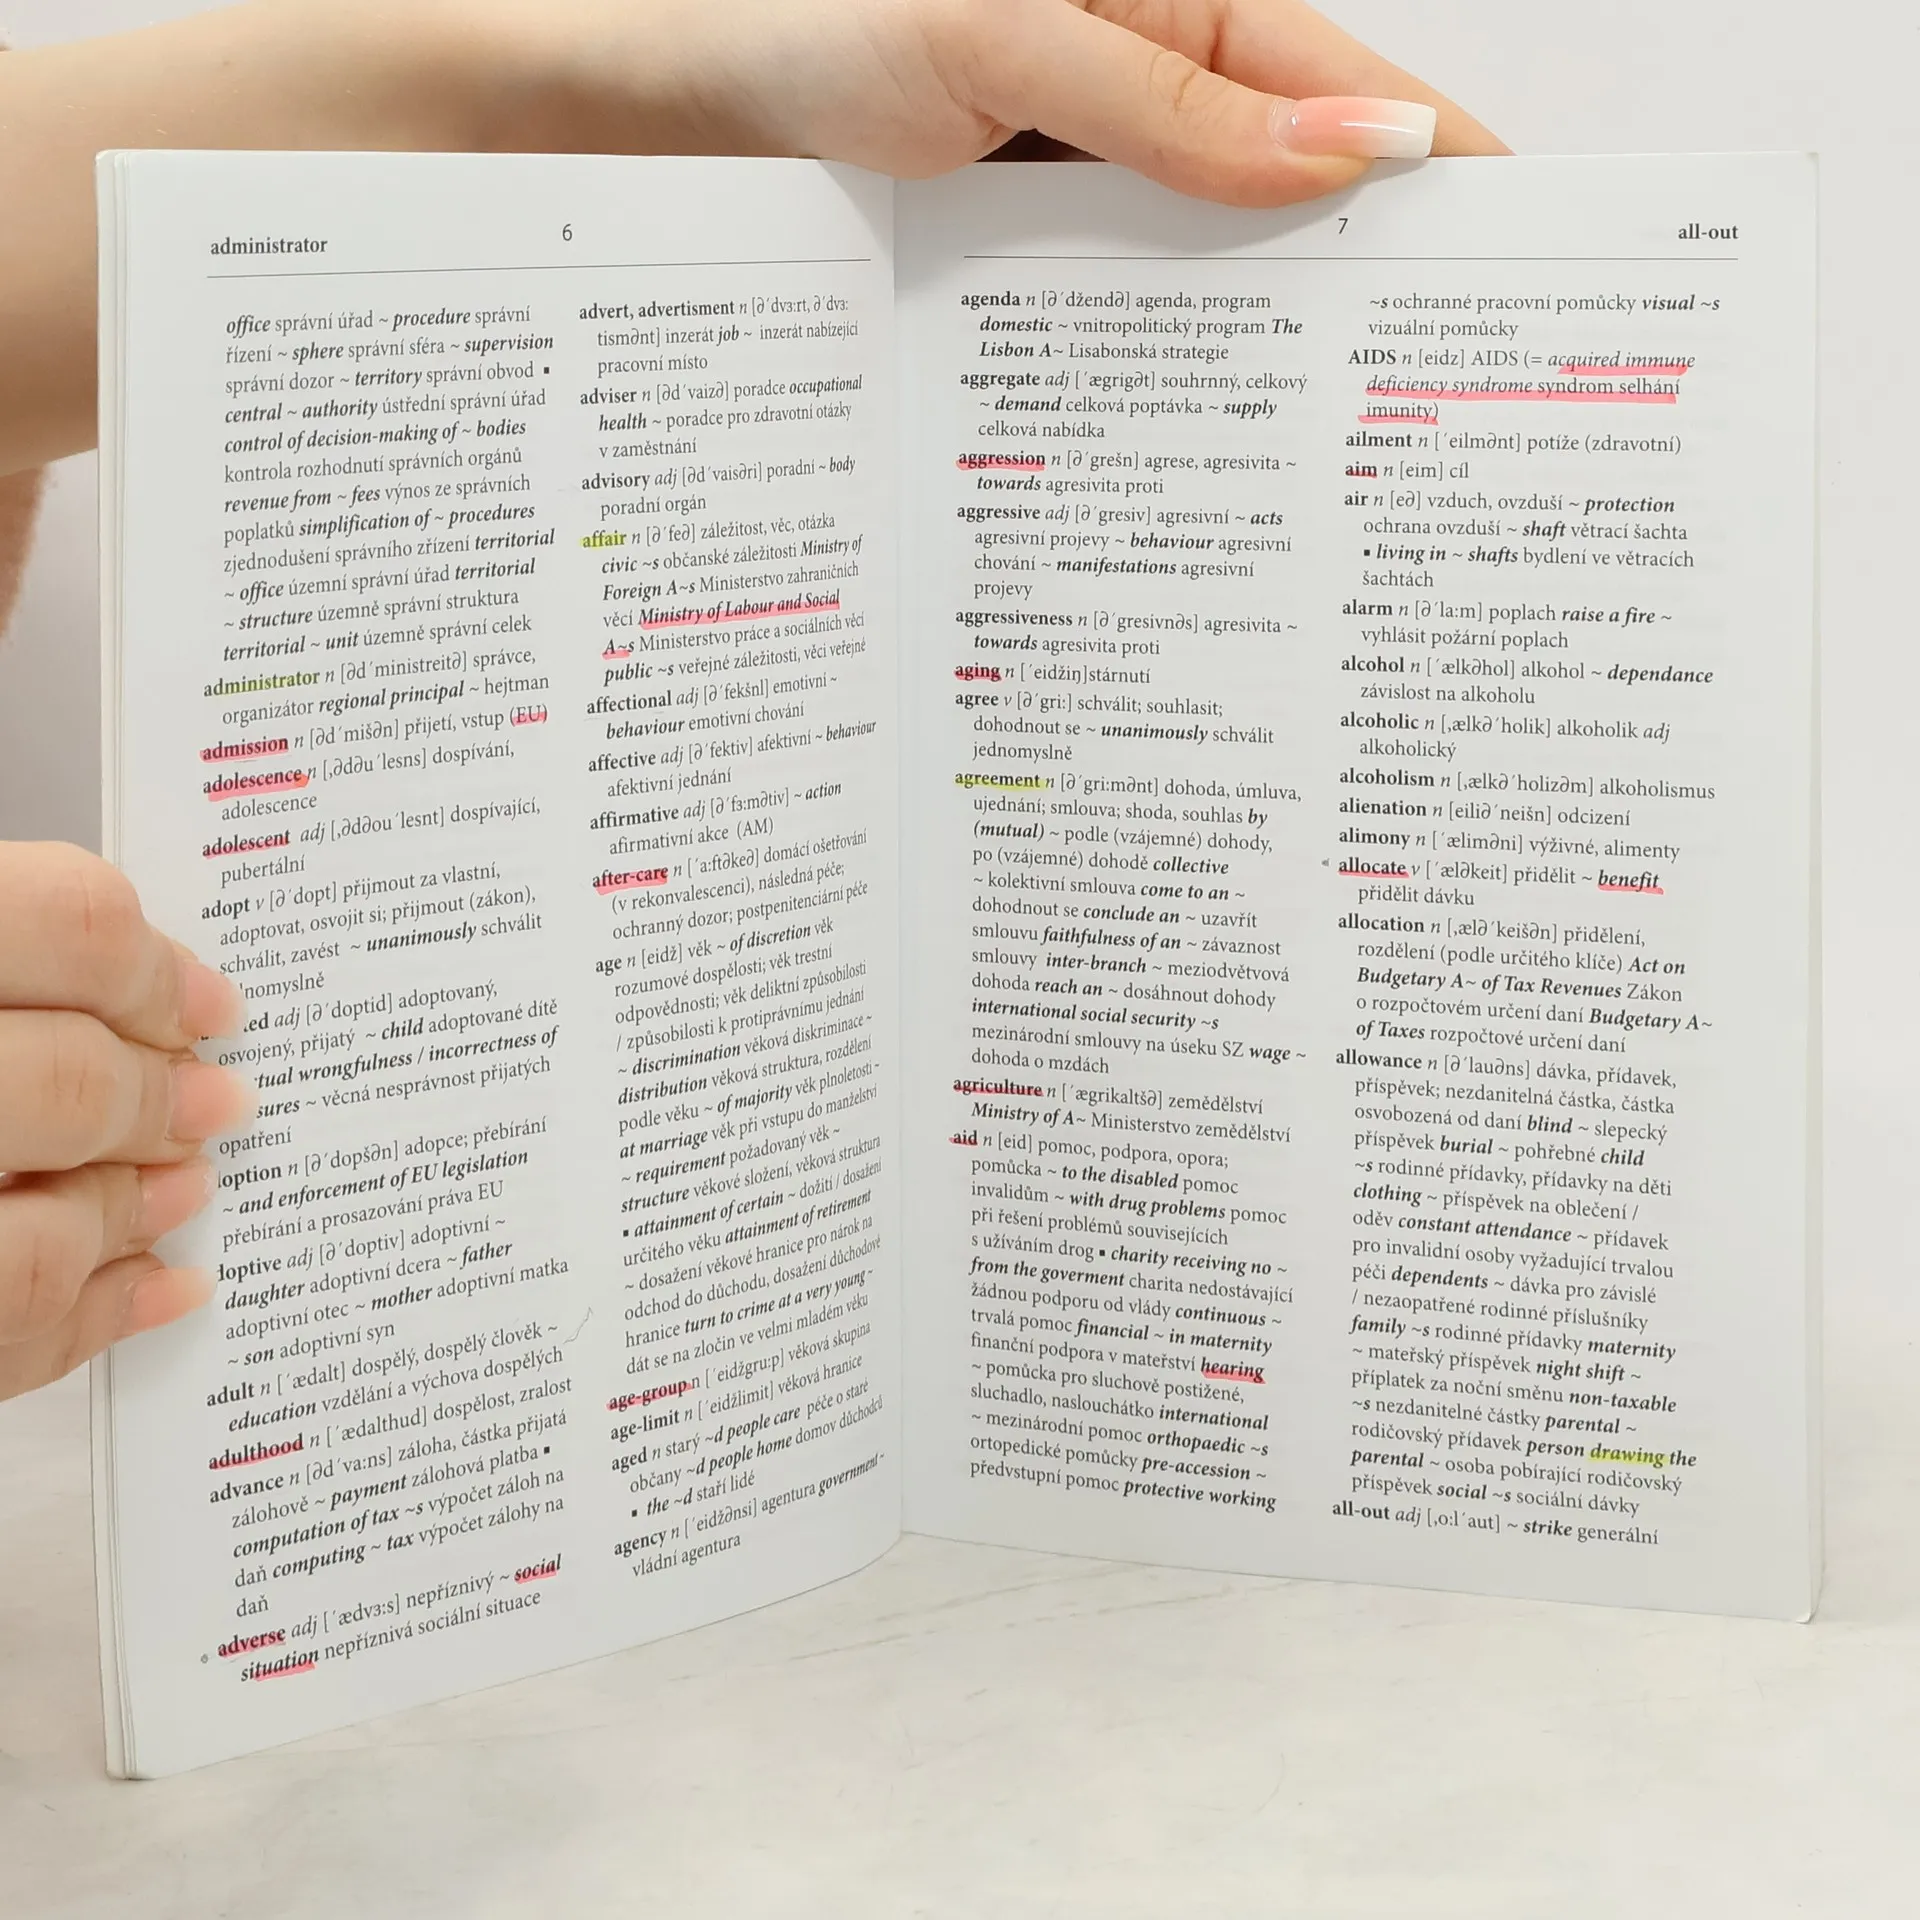 administrator
6
office správní úřad ~ procedure správní
řízení ~ sphere správní sféra ~ supervision
správní dozor ~ territory správní obvod ▪
central ~ authority ústřední správní úřad
control of decision-making of ~ bodies
kontrola rozhodnutí správních orgánů
revenue from ~ fees výnos ze správních
poplatků simplification of ~ procedures
zjednodušení správního zřízení territorial
~ office územní správní úřad territorial
~ structure územně správní struktura
territorial ~ unit územně správní celek
administrator n [∂d´ministreit∂] správce,
organizátor regional principal ~ hejtman
admission n [∂d´miš∂n] přijetí, vstup (EU)
adolescence n [,∂d∂u´lesns] dospívání,
adolescence
adolescent adj [,∂d∂ou´lesnt] dospívající,
pubertální
adopt v [∂´dopt] přijmout za vlastní,
adoptovat, osvojit si; přijmout (zákon),
schválit, zavést ~ unanimously schválit
nomyslně
ed adj [∂´doptid] adoptovaný,
osvojený, přijatý ~ child adoptované dítě
tual wrongfulness / incorrectness of
sures ~ věcná nesprávnost přijatých
opatření
option n [∂´dopš∂n] adopce; přebírání
~ and enforcement of EU legislation
přebírání a prosazování práva EU
loptive adj [∂´doptiv] adoptivní ~
daughter adoptivní dcera ~ father
adoptivní otec ~ mother adoptivní matka
~ son adoptivní syn
adult n [´ædalt] dospělý, dospělý člověk ~
education vzdělání a výchova dospělých
adulthood n [´ædalthud] dospělost, zralost
advance n [∂d´va:ns] záloha, částka přijatá
zálohově ~ payment zálohová platba ▪
computation of tax ~s výpočet záloh na
daň computing ~ tax výpočet zálohy na
daň
adverse adj [´ædvɜ:s] nepříznivý ~ social
situation nepříznivá sociální situace
advert, advertisment n [∂´dvɜ:rt, ∂´dvɜ:
tism∂nt] inzerát job ~ inzerát nabízející
pracovní místo
adviser n [∂d´vaiz∂] poradce occupational
health ~ poradce pro zdravotní otázky
v zaměstnání
advisory adj [∂d´vais∂ri] poradní ~ body
poradní orgán
affair n [∂´fe∂] záležitost, věc, otázka
civic ~s občanské záležitosti Ministry of
Foreign A~s Ministerstvo zahraničních
věcí Ministry of Labour and Social
A~s Ministerstvo práce a sociálních věcí
public ~s veřejné záležitosti, věci veřejné
affectional adj [∂´fekšnl] emotivní ~
behaviour emotivní chování
affective adj [∂´fektiv] afektivní ~ behaviour
afektivní jednání
affirmative adj [∂´fɜ:m∂tiv] ~ action
afirmativní akce (AM)
after-care n [´a:ft∂ke∂] domácí ošetřování
(v rekonvalescenci), následná péče;
ochranný dozor; postpenitenciární péče
age n [eidž] věk ~ of discretion věk
rozumové dospělosti; věk trestní
odpovědnosti; věk deliktní způsobilosti
/ způsobilosti k protiprávnímu jednání
~ discrimination věková diskriminace ~
distribution věková struktura, rozdělení
podle věku ~ of majority věk plnoletosti ~
at marriage věk při vstupu do manželství
~ requirement požadovaný věk ~
structure věkové složení, věková struktura
▪ attainment of certain ~ dožití / dosažení
určitého věku attainment of retirement
~ dosažení věkové hranice pro nárok na
odchod do důchodu, dosažení důchodové
hranice turn to crime at a very young ~
dát se na zločin ve velmi mladém věku
age-group n [´eidžgru:p] věková skupina
age-limit n [´eidžlimit] věková hranice
aged n starý ~d people care péče o staré
občany ~d people home domov důchodců
▪ the ~d staří lidé
agency n [´eidž∂nsi] agentura government ~
vládní agentura
7
all-out
agenda n [∂´džend∂] agenda, program
domestic ~ vnitropolitický program The
Lisbon A~ Lisabonská strategie
aggregate adj [´ægrig∂t] souhrnný, celkový
~ demand celková poptávka ~ supply
celková nabídka
aggression n [∂´grešn] agrese, agresivita ~
towards agresivita proti
aggressive adj [∂´gresiv] agresivní ~ acts
agresivní projevy ~ behaviour agresivní
chování ~ manifestations agresivní
projevy
aggressiveness n [∂´gresivn∂s] agresivita ~
towards agresivita proti
aging n [´eidžiŋ]stárnutí
agree v [∂´gri:] schválit; souhlasit;
dohodnout se ~ unanimously schválit
jednomyslně
agreement n [∂´gri:m∂nt] dohoda, úmluva,
ujednání; smlouva; shoda, souhlas by
(mutual) ~ podle (vzájemné) dohody,
po (vzájemné) dohodě collective
~ kolektivní smlouva come to an ~
dohodnout se conclude an ~ uzavřít
smlouvu faithfulness of an ~ závaznost
smlouvy inter-branch ~ meziodvětvová
dohoda reach an ~ dosáhnout dohody
international social security ~s
mezinárodní smlouvy na úseku SZ wage ~
dohoda o mzdách
agriculture n [´ægrikaltš∂] zemědělství
Ministry of A~ Ministerstvo zemědělství
aid n [eid] pomoc, podpora, opora;
pomůcka ~ to the disabled pomoc
invalidům ~ with drug problems pomoc
při řešení problémů souvisejících
s užíváním drog ▪ charity receiving no ~
from the goverment charita nedostávající
žádnou podporu od vlády continuous ~
trvalá pomoc financial ~ in maternity
finanční podpora v mateřství hearing
~ pomůcka pro sluchově postižené,
sluchadlo, naslouchátko international
~ mezinárodní pomoc orthopaedic ~s
ortopedické pomůcky pre-accession ~
předvstupní pomoc protective working
~s ochranné pracovní pomůcky visual ~s
vizuální pomůcky
AIDS n [eidz] AIDS (= acquired immune
deficiency syndrome syndrom selhání
imunity)
ailment n [´eilm∂nt] potíže (zdravotní)
aim n [eim] cíl
air n [e∂] vzduch, ovzduší ~ protection
ochrana ovzduší ~ shaft větrací šachta
▪ living in ~ shafts bydlení ve větracích
šachtách
alarm n [∂´la:m] poplach raise a fire ~
vyhlásit požární poplach
alcohol n [´ælk∂hol] alkohol ~ dependance
závislost na alkoholu
alcoholic n [,ælk∂´holik] alkoholik adj
alkoholický
alcoholism n [,ælk∂´holiz∂m] alkoholismus
alienation n [eili∂´neišn] odcizení
alimony n [´ælim∂ni] výživné, alimenty
allocate v [´æl∂keit] přidělit ~ benefit
přidělit dávku
allocation n [,æl∂´keiš∂n] přidělení,
rozdělení (podle určitého klíče) Act on
Budgetary A~ of Tax Revenues Zákon
o rozpočtovém určení daní Budgetary A~
of Taxes rozpočtové určení daní
allowance n [∂´lau∂ns] dávka, přídavek,
příspěvek; nezdanitelná částka, částka
osvobozená od daní blind ~ slepecký
příspěvek burial ~ pohřebné child
~s rodinné přídavky, přídavky na děti
clothing ~ příspěvek na oblečení /
oděv constant attendance ~ přídavek
pro invalidní osoby vyžadující trvalou
péči dependents ~ dávka pro závislé
/ nezaopatřené rodinné příslušníky
family ~s rodinné přídavky maternity
~ mateřský příspěvek night shift ~
příplatek za noční směnu non-taxable
~s nezdanitelné částky parental ~
rodičovský přídavek person drawing the
parental ~ osoba pobírající rodičovský
příspěvek social ~s sociální dávky
all-out adj [,o:l´aut] ~ strike generální